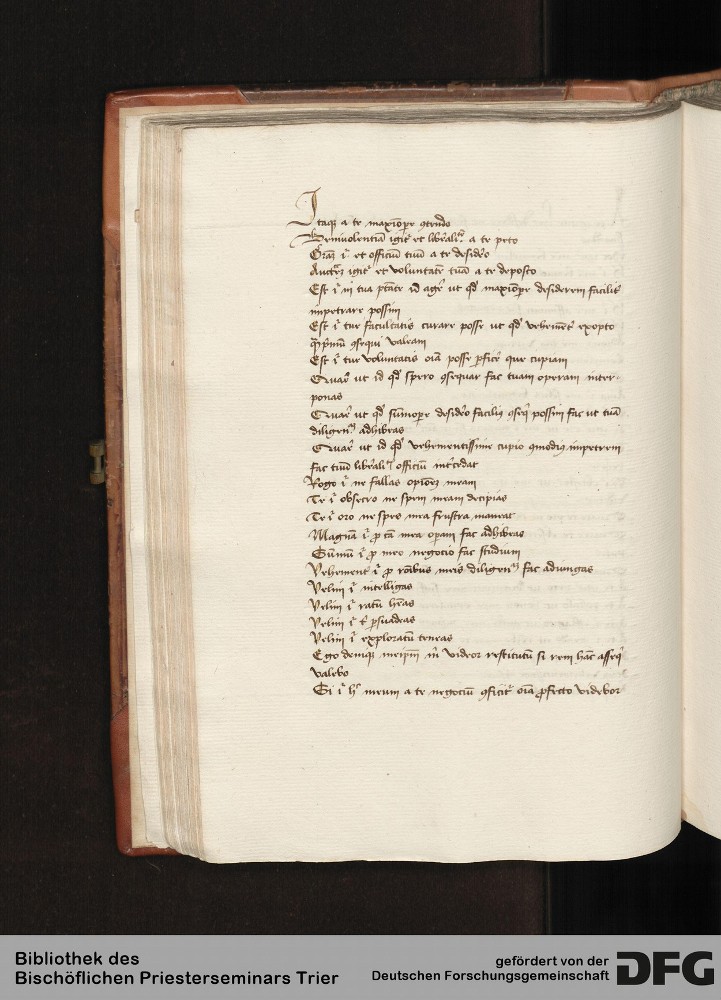 Itaq; a te maxiope 9tendo
Beniuolentiã igit et libralitẽ a te peto
Graz i et officiũ tuũ a te desidero
Auctez igit et voluntatẽ tuã a te deposco
Est i in tua ptate id agẽ ut qd maxiope desiderem facilit
impetrare possim
Est i tue facultatis curare posse ut qd vehemẽt exopto
9sequi valeam
Est i tue voluntatis oia posse pficẽ que cupiam
Quarẽ ut id qd spero 9sequar fac tuam operam inter-
ponas
Quarẽ ut qd sũmope desidero facilius 9seq possim fac ut tuã
diligen adhibeas
Quarẽ ut id qd vehementissime cupio 9modius impetrem
fac tuũ libralit officiũ intcedat
Rogo i ne fallas opioez meam
Te i obsecro ne spem meam decipias
Te i oro ne spes mea frustra maneat
Magnã i p cã mea opam fac adhibeas
Sũmũ i p meo negocio fac studium
Vehement i p roibus meis diligen fac adiungas
Velim i intelligas
Velim i ratũ hẽas
Velim i t psuadeas
Velim i exploratũ teneas
Ego deniq; meipm m videor restitutũ si rem hãc asseq
valebo
Si i h meum a te negociũ 9ficit oia pfecto videbor
Bibliothek des
Bischöflichen Priesterseminars Trier
gefördert von der
Deutschen Forschungsgemeinschaft
DFG